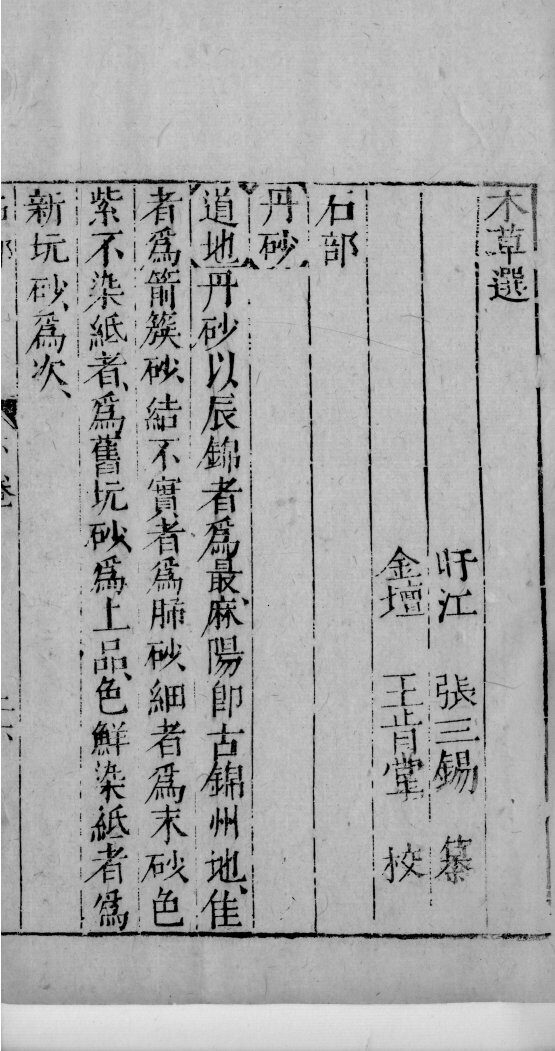 本草選
盱江 張三錫 纂
金壇 王肯堂 校
石部
丹砂
道地丹砂以辰錦者爲最麻陽卽古錦州地佳
者爲箭簇砂結不實者爲肺砂細者爲末砂色
紫不染紙者爲舊坑砂爲上品色鮮染紙者爲
新坑砂爲次